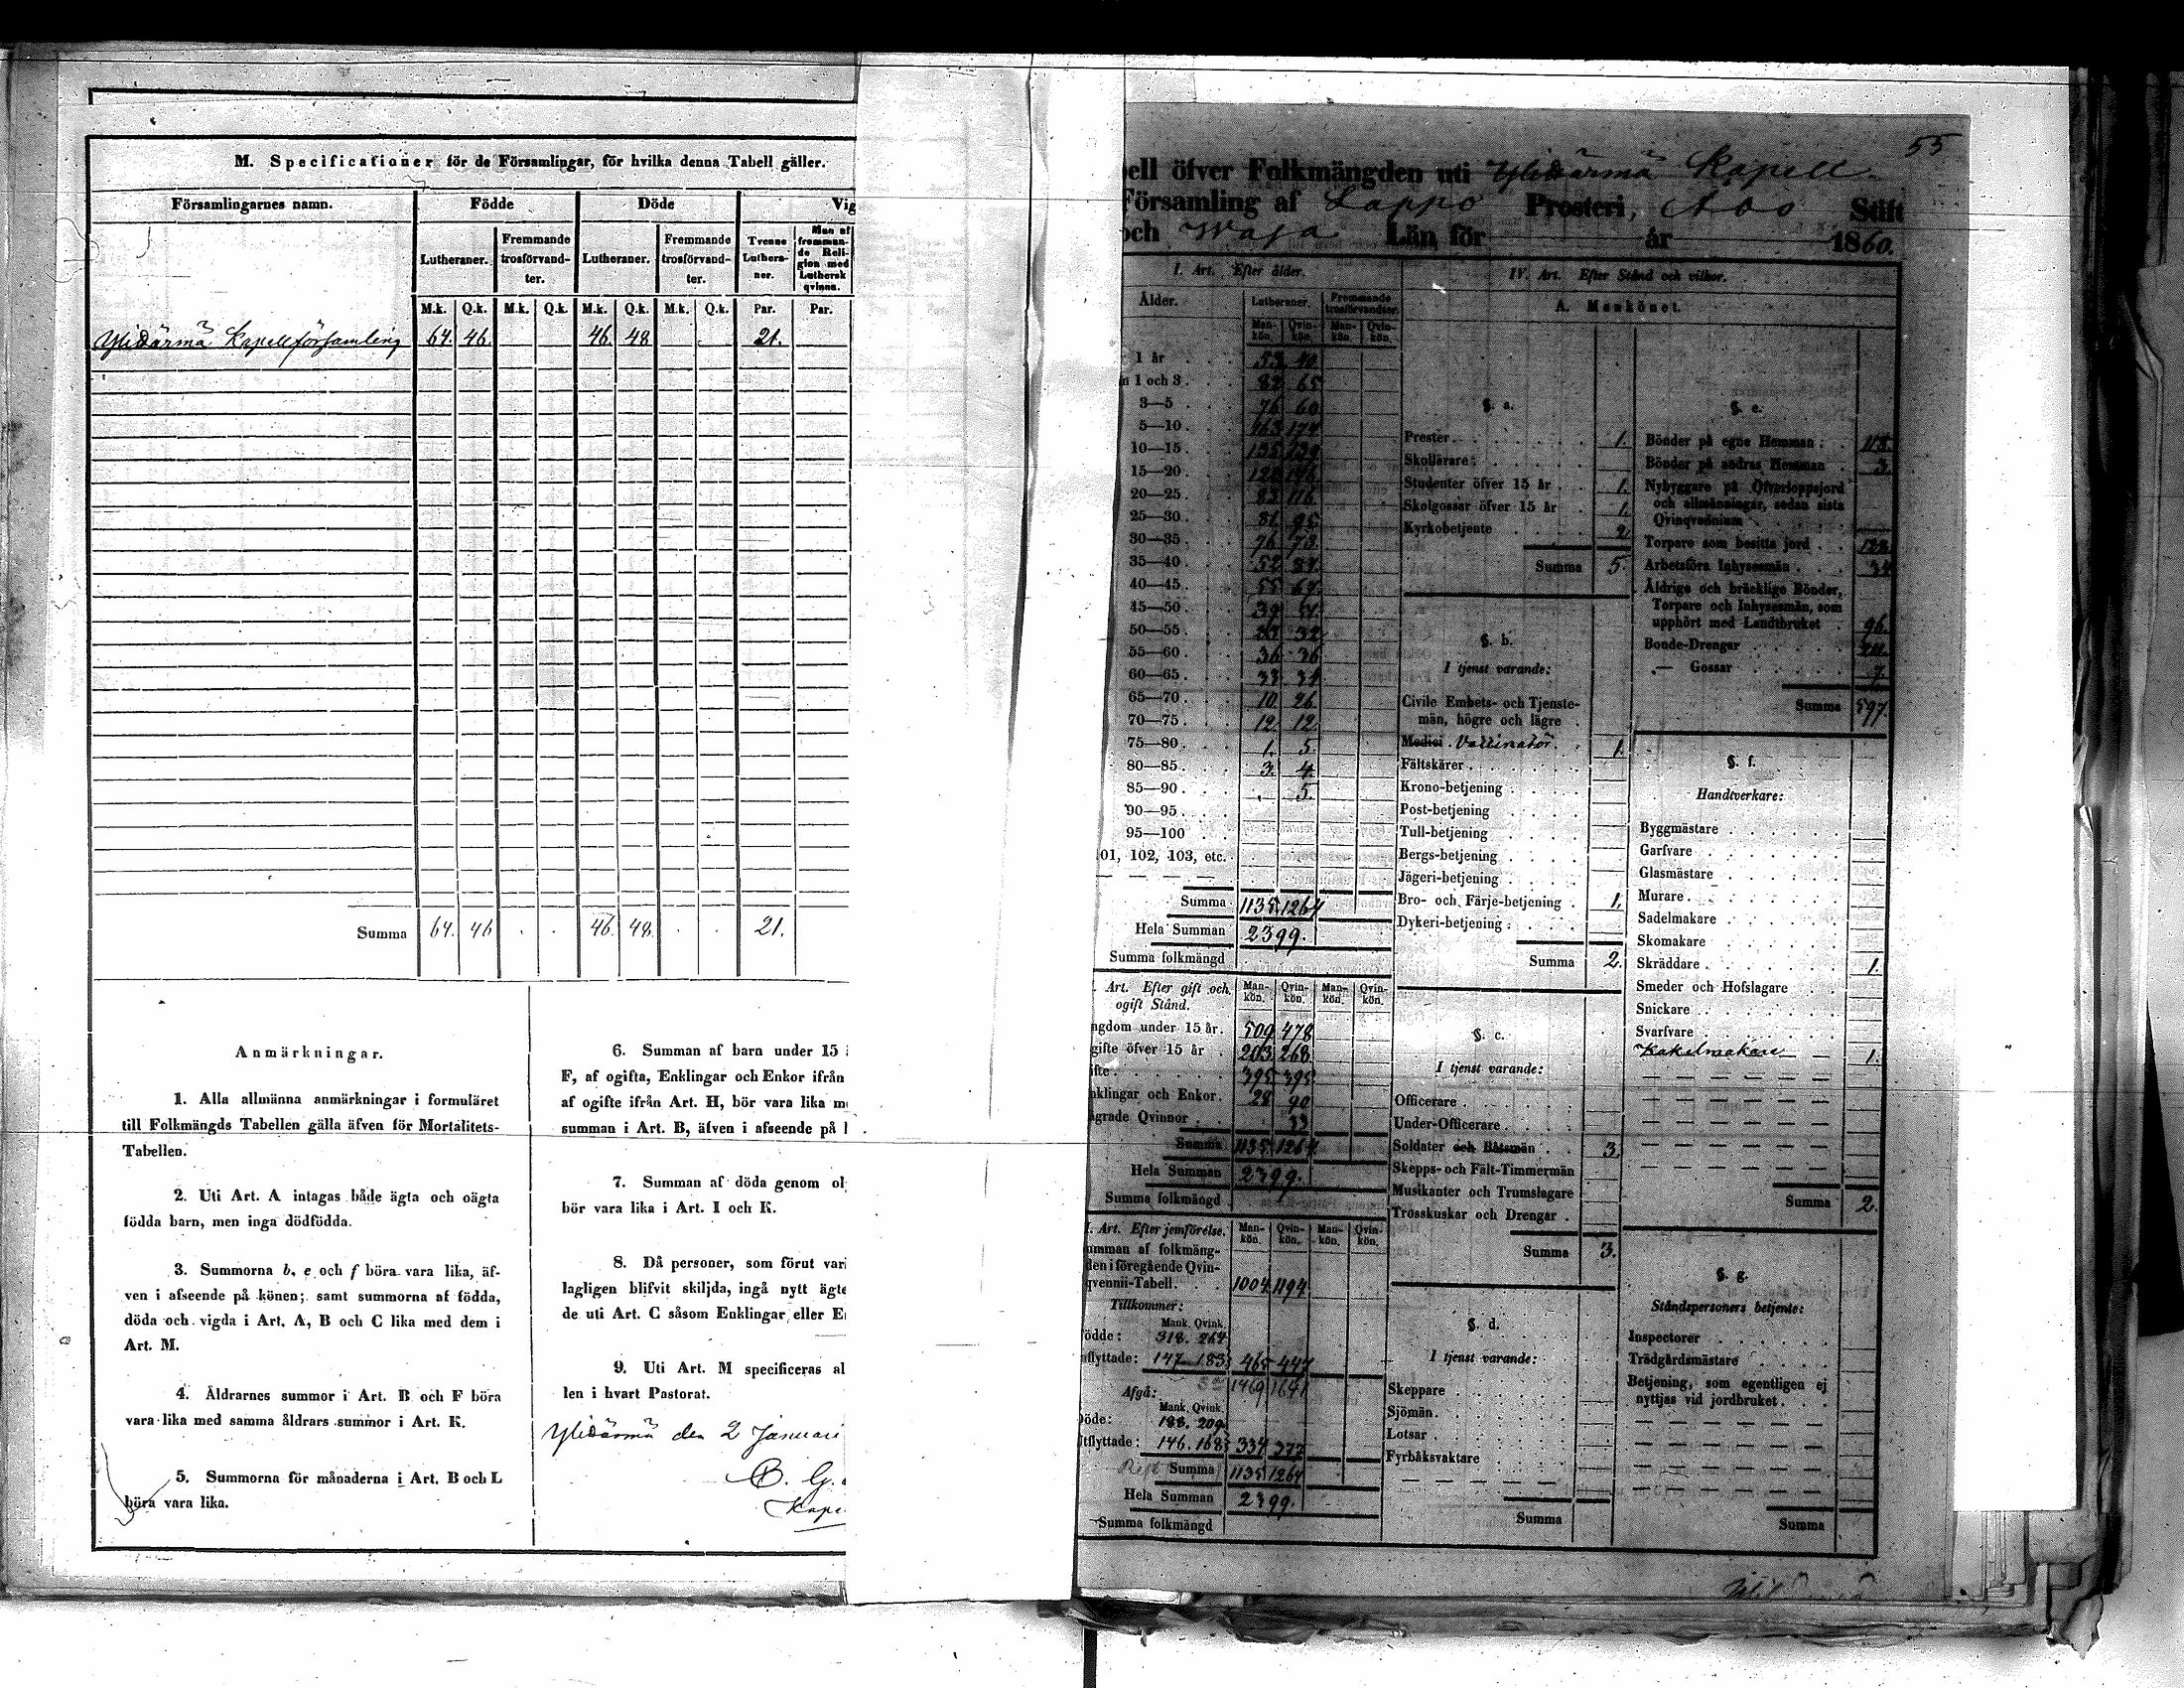 M. Specificationer för de Församlingar, för hvilka denna Tabell gäller.
Församlingarnes namn. Födde Döde Vig
Lutheraner. Fremmande trosförvandter. Lutheraner. Fremmande trosförvandter. Tvenne Lutheraner. Man af frommande Religion med Luthersk qvinna.
M.k. Q.k. M.k. Q.k. M.k. Q.k. M.k. Q.k. Par. Par.
Ylidärmä Kapellförsamling 64. 46. 46. 48 21.
Summa 64. 46 . . 46. 48. . . 21.
Anmärkningar.
1. Alla allmänna anmärkningar i formuläret
till Folkmängds Tabellen gälla äfven för Mortalitets-
Tabellen.
2. Uti Art. A intagas både ägta och oägta
födda barn, men inga dödfödda.
3. Summorna b, e och f böra vara lika, äf-
ven i afseende på könen; samt summorna af födda,
döda och vigda i Art. A, B och C lika med dem i
Art. M.
4. Åldrarnes summor i Art. B och F böra
vara lika med samma åldrars summor i Art. K.
5. Summorna för månaderna i Art. B och L
böra vara lika.
6. Summan af barn under 15
F, af ogifta, Enklingar och Enkor ifrån
af ogifte ifrån Art. H, bör vara lika m
summan i Art. B, äfven i afseende på
7. Summan af döda genom ol
bör vara lika i Art. I och K.
8. Då personer, som förut vari
lagligen blifvit skiljda, ingå nytt ägte
de uti Art. C såsom Enklingar eller E
9. Uti Art. M specificeras al
len i hvart Pastorat.
Ylidärmä den 2 Januari
B. G.
Kape
55
bell öfver Folkmängden uti Ylidärmä Kapell
Församling af Lappo Prosteri, Abo Stift
och Wasa Län för år 1860.
I. Art. Efter ålder.
Ålder. Lutheraner. Fremmande trosförvandter.
Mankön. Qvinkön. Mankön. Qvinkön.
1 år 53 40
n 1 och 3. 82 65
3—5 76 60
5—10. 163 174
10—15. 135 139
15—20. 120 146
20—25. 83 116
25—30. 81 95
30—35. 76 73
35—40. 52 87
40—45. 55 64
45—50. 39 51
50—55. 32
55—60. 36 36
60—65. 33 31
65—70. 10 26
70—75. 12 12
75—80. 1. 5.
80—85. 3. 4.
85—90. . 5.
90—95.
95—100
01, 102, 103, etc.
Summa 1135 1264
Hela Summan 2399.
Summa folkmängd
Art. Efter gift och ogift Stånd. Mankön. Qvinkön. Mankön. Qvinkön.
ngdom under 15 år. 509 478
gifte öfver 15 år 203 268
ifte 395 395
nklingar och Enkor. 28 90
ägrade Qvinnor 33
Summa 1135 1264
Hela Summan 2399.
Summa folkmängd
I. Art. Efter jemförelse. Mankön. Qvinkön. Mankön. Qvinkön.
umman af folkmäng-
den i föregående Qvin-
qvennii-Tabell. 1004 1194
Tillkommer:
Mank. Qvink.
ödde: 318. 264
nflyttade: 147 183 465 447
1469 1641
Afgå:
Mank. Qvink.
Döde: 188. 209
Utflyttade: 146. 168 334 377
Rest Summa 1135 1264
Hela Summan 2399.
Summa folkmängd
IV. Art. Efter Stånd och vilkor.
A. Mankönet.
§. a.
Prester. 1.
Skollärare:
Studenter öfver 15 år 1.
Skolgossar öfver 15 år 1.
Kyrkobetjente 2
Summa 5.
§. b.
I tjenst varande:
Civile Embets- och Tjenste-
män, högre och lägre
Medici. Vaccinatör. 1.
Fältskärer
Krono-betjening
Post-betjening
Tull-betjening
Bergs-betjening
Jägeri-betjening
Bro- och Färje-betjening 1.
Dykeri-betjening
Summa 2.
§. c.
I tjenst varande:
Officerare
Under-Officerare
Soldater och Båtsmän 3.
Skepps- och Fält-Timmermän
Musikanter och Trumslagare
Trosskuskar och Drengar
Summa 3.
§. d.
I tjenst varande:
Skeppare
Sjömän.
Lotsar
Fyrbåksvaktare
Summa
§. e.
Bönder på egne Hemman 118.
Bönder på andras Hemman 3.
Nybyggare på Öfverloppsjord
och allmänningar, sedan sista
Qvinqvennium
Torpare som besitta jord 128.
Arbetsföra Inhysesmän 34
Åldrige och bräcklige Bönder,
Torpare och Inhysesmän, som
upphört med Landtbruket 96.
Bonde-Drengar 211.
— Gossar 7.
Summa 597.
§. f.
Handtverkare:
Byggmästare
Garfvare
Glasmästare
Murare
Sadelmakare
Skomakare
Skräddare 1.
Smeder och Hofslagare
Snickare
Svarfvare
Kakelmakare 1.
Summa 2.
§. g.
Ståndspersoners betjente:
Inspectorer
Trädgårdsmästare
Betjening, som egentligen ej
nyttjas vid jordbruket.
Summa